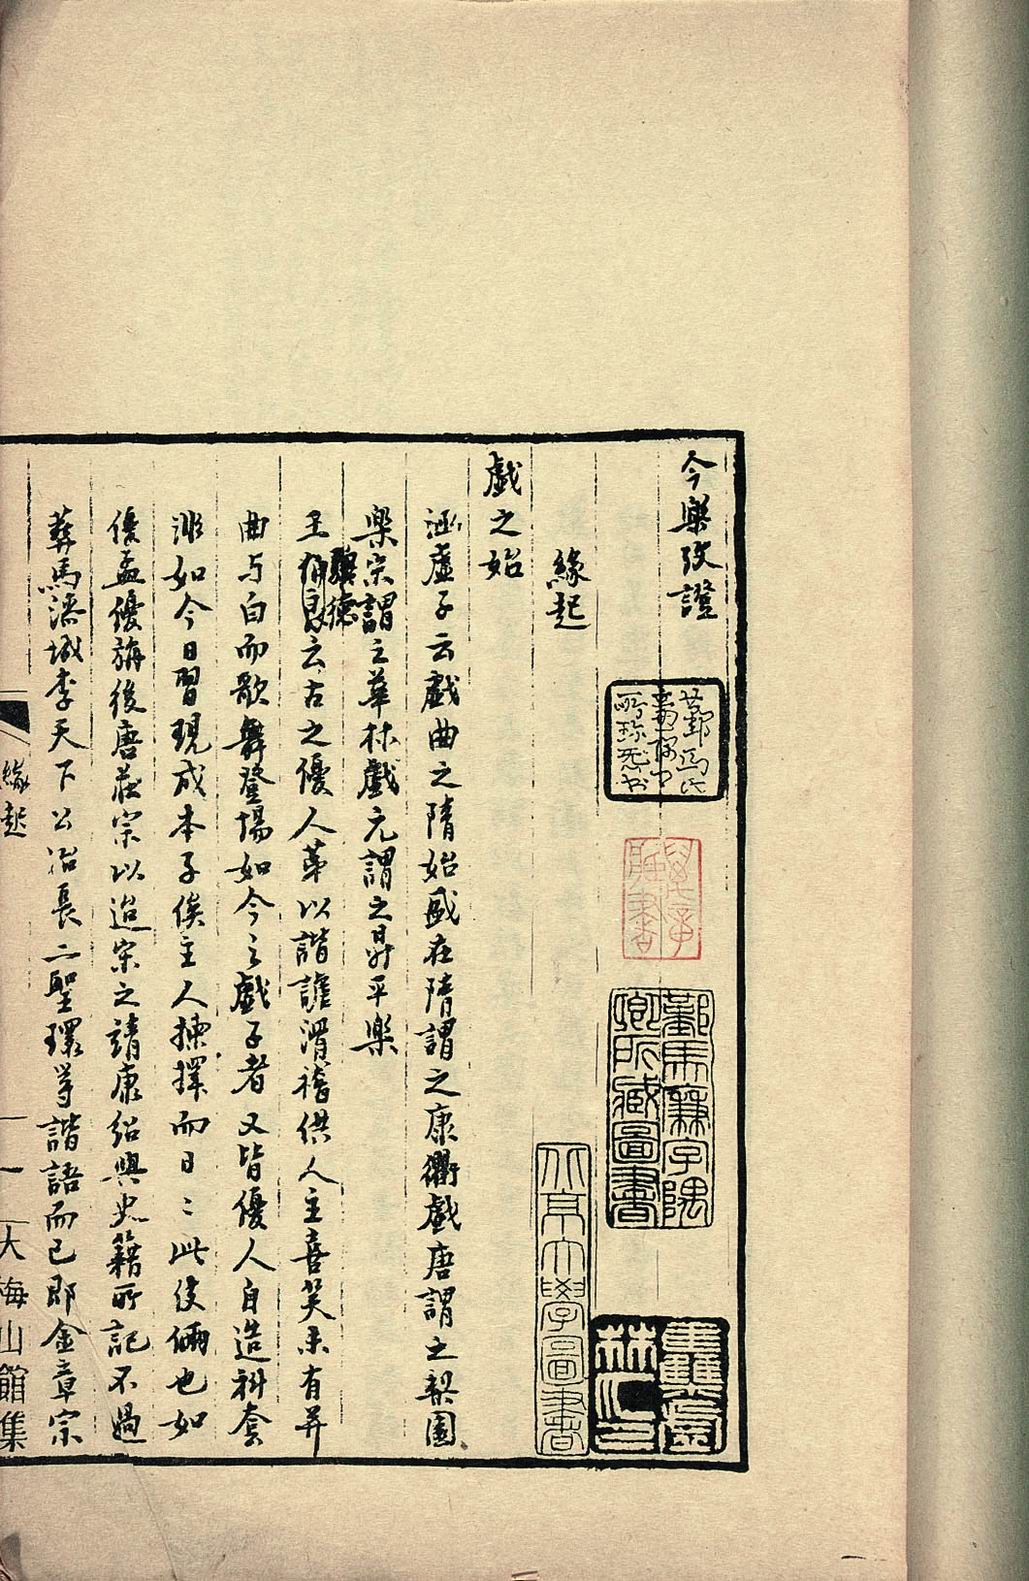 今樂攷證
緣起
戲之始
涵虛子云戲曲之隋始盛在隋謂之康衢戲唐謂之棃園
樂宗謂之華林戲元謂之昇平樂
王驥德云古之優人苐以諧謔滑稽供人主喜笑未有并
曲与白而歌舞登場如今之戲子者又皆優人自造科套
非如今日習現成本子俟主人揀擇而日〻此伎倆也如
優孟優旃後唐莊宗以迨宋之靖康紹興史籍所記不過
葬馬漆城李天下公冶長二聖環等諧語而已即金章宗
緣起
一
大梅山館集
鄞馬廉字隅卿所藏圖書
北京大學圖書